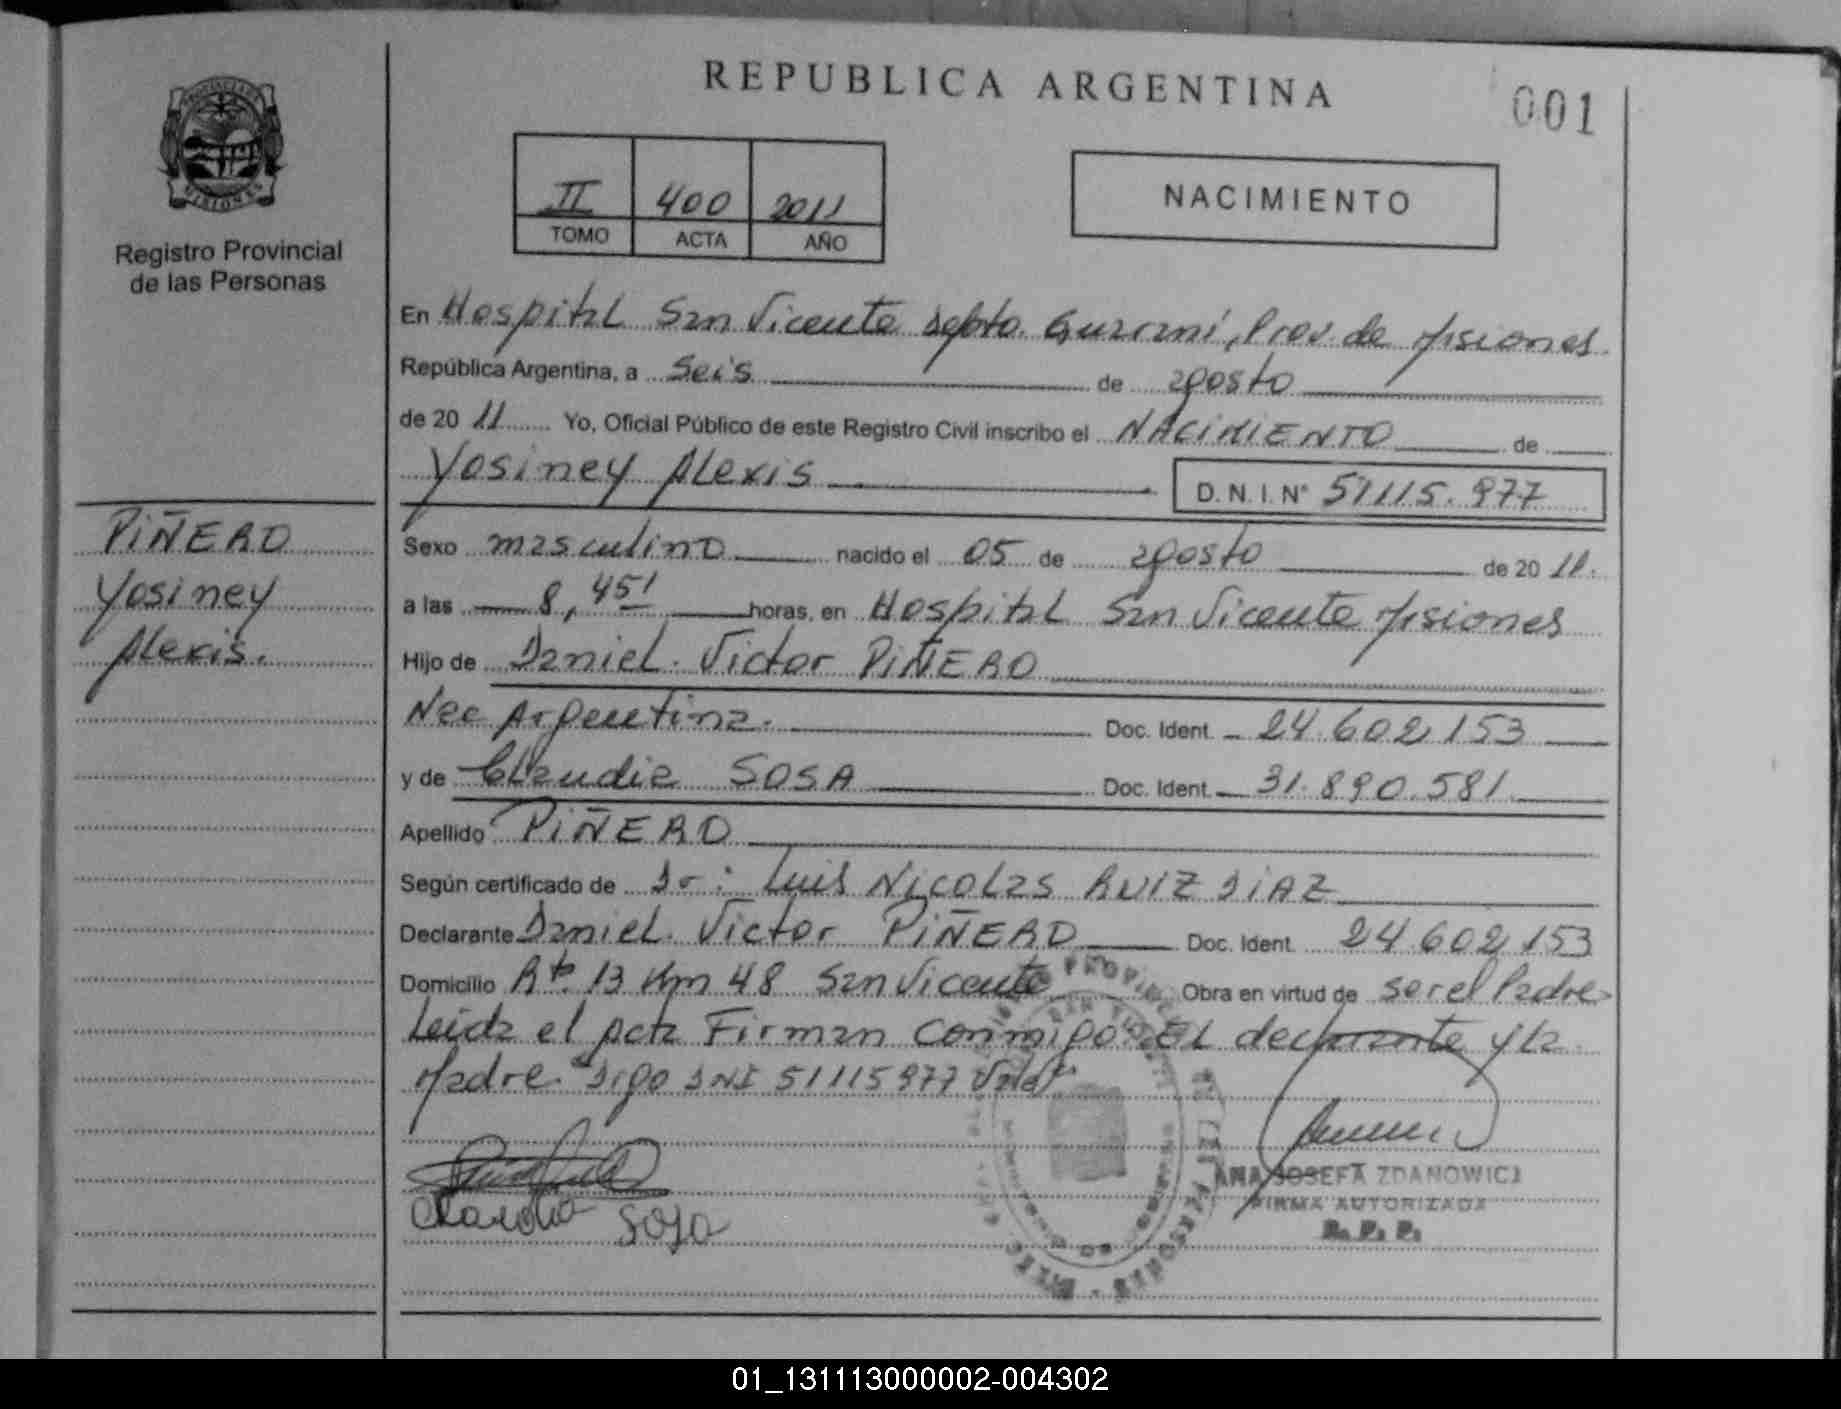 REPUBLICA ARGENTINA
001
II 400 2011
TOMO ACTA AÑO
NACIMIENTO
MISIONES
Registro Provincial
de las Personas
En Hospital San Vicente Depto. Guaraní, Prov. de Misiones
República Argentina, a Seis de agosto
de 20 11 Yo, Oficial Público de este Registro Civil inscribo el NACIMIENTO de
Yosiney Alexis D.N.I.N° 51115.977
PIÑERO
Yosiney
Alexis.
Sexo masculino nacido el 05 de agosto de 20 11.
a las 8,45' horas, en Hospital San Vicente Misiones
Hijo de Daniel Victor PIÑERO
Nac Argentina. Doc. Ident. 24.602.153
y de Claudia SOSA Doc. Ident. 31.890.581.
Apellido PIÑERO
Según certificado de Dr: Luis Nicolas RUIZ DIAZ
Declarante Daniel Victor PIÑERO Doc. Ident. 24.602.153
Domicilio Rta. 13 Km 48 San Vicente Obra en virtud de ser el Padre
Leida el Acta Firman Conmigo El declarante y la
Madre Digo DNI 51115977 Vale
Claudia Sosa
ANA JOSEFA ZDANOWICZ
FIRMA AUTORIZADA
R. P. P.
01_131113000002-004302